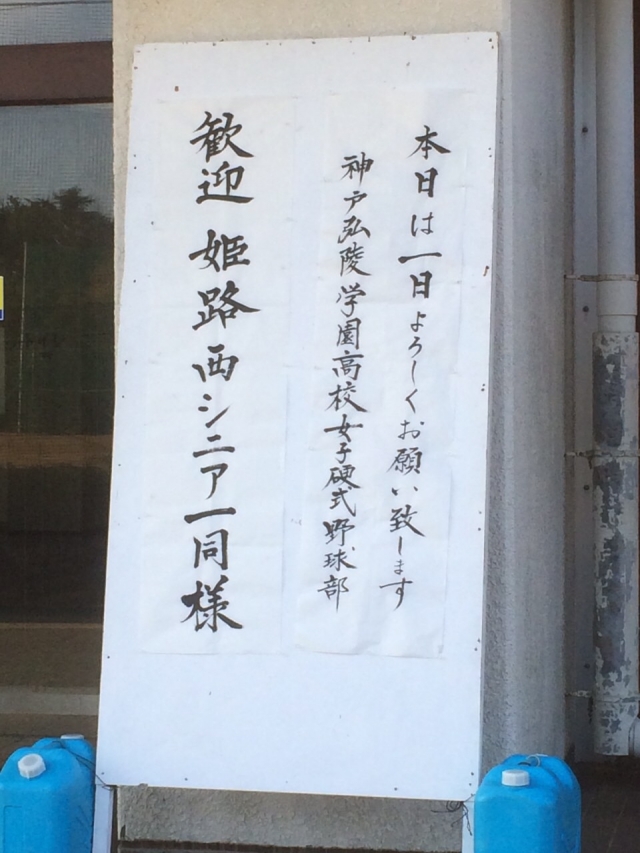 本日は一日よろしくお願い致します
神戸弘陵学園高校女子硬式野球部
歓迎 姫路西シニア一同様